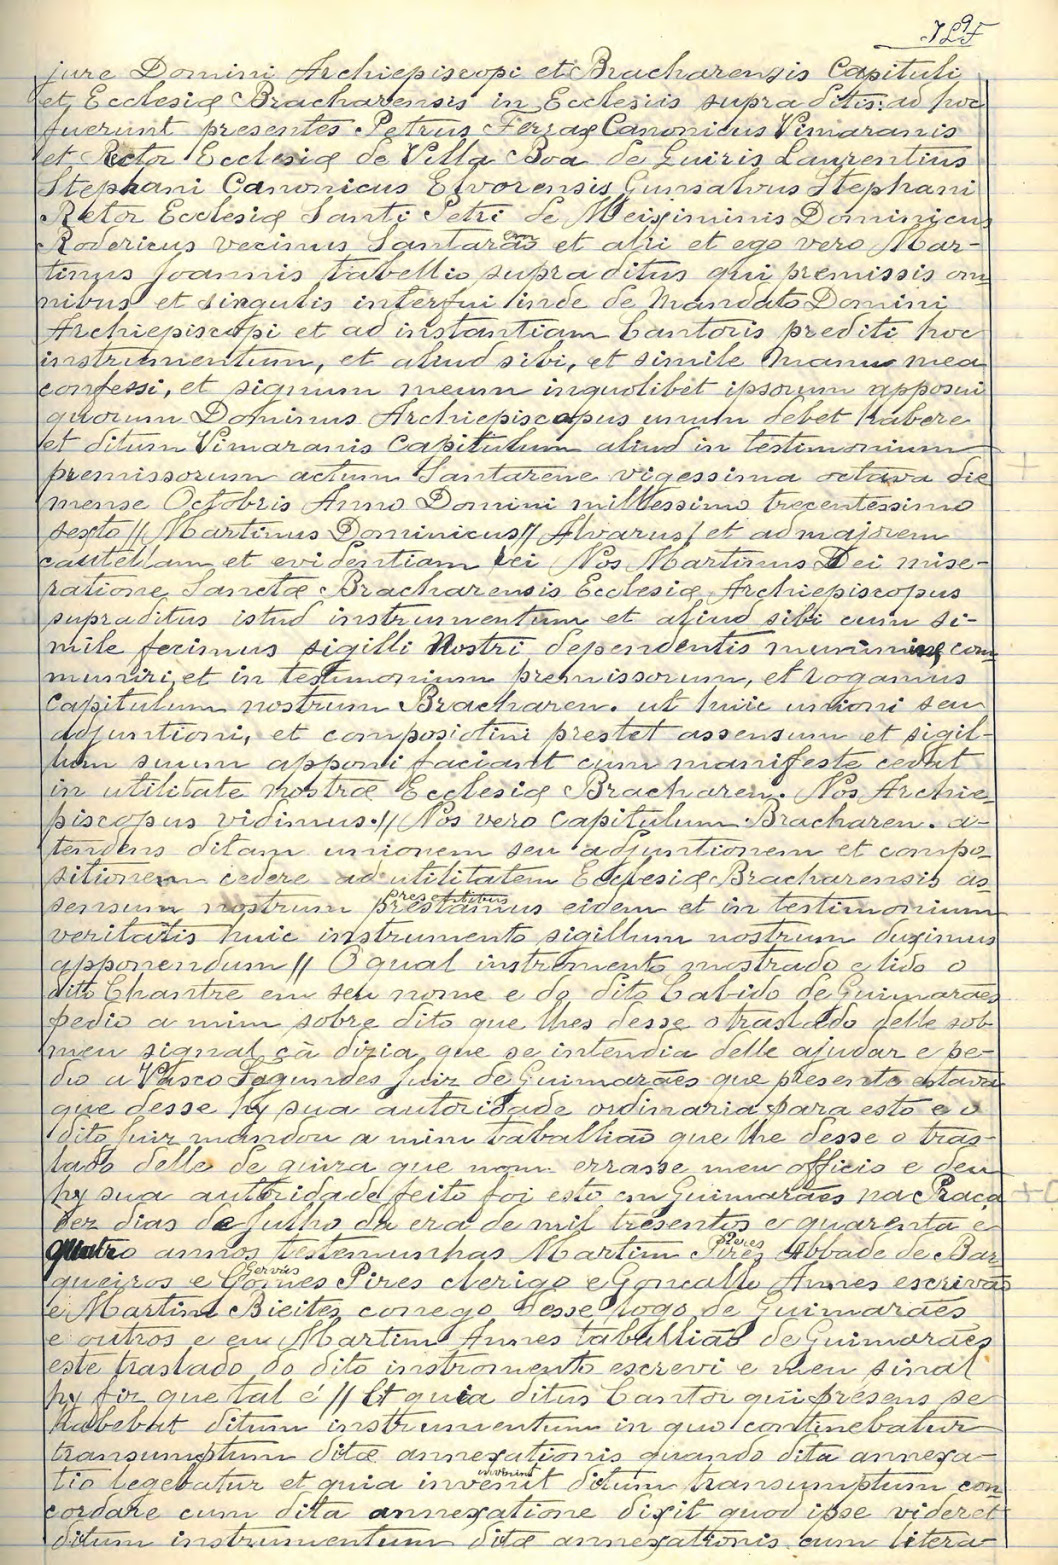 9
jure Domini Archiepiscopi et Bracharensis Capituli
et Ecclesiæ Bracharensis in Ecclesiis supra ditis: ad hoc
fuerunt presentes Petrus Ferraz Canonicus Vimaranis
et Rector Ecclesiæ de Villa Boa de Quiris Laurentius
Stephani Canonicus Elvorensis Gunsalvus Stephani
Retor Ecclesiæ Santi Petri de Meiximinis Dominicus
Rodericus vecinus Santarão et alii et ego vero Mar-
tinus Joannis tabellio supra ditus qui premissis om
nibus et singulis interfui inde de mandato Domini
Archiepiscopi et ad instantiam Cantoris prediti hoc
instrumentum, et aliud sibi, et simile manu mea
confessi, et signum meum inquolibet ipsorum apposui
quorum Dominus Archiepiscopus unum debet habere
et ditum Vimaranis Capitulum aliud in testimonium
premissorum actum Santarene vigessima octava die
mense Octobris Anno Domini millessimo trecentessimo
sexto // Martinus Dominicus // Alvarus / et ad majorem
cautellam et evidentiam rei Nos Martinus Dei mise-
ratione Sanctæ Bracharensis Ecclesiæ Archiepiscopus
supraditus istud instrumentum et aliud sibi cum si-
mile fecimus sigilli Nostri dependentis munimine com
muniri, et in testimonium premissorum, et rogamus
Capitulum nostrum Bracharen. ut huic unioni seu
adjuntioni, et composiotini prestet assensum et sigil-
lum suum apponi faciant cum manifeste cedat
in utilitate nostræ Ecclesiæ Bracharen. Nos Archie-
piscopus vidimus. // Nos vero Capitulum Bracharen. a-
tendens ditam unionem seu adjuntionem et compo-
sitionem cedere ad utilitatem Ecclesiæ Bracharensis as-
sensum nostrum prestamus eidem et in testimonium
veritatis huic instrumento sigillum nostrum duximus
apponendum // O qual instromento mostrado e lido o
ditto Chantre em seu nome e do dito Cabido de Guimarães
pedio a mim sobre dito que lhes desse o traslado delle sob
meu signal cà dizia que se intendia delle ajudar e pe-
dio a Vasco Fagundes Juiz de Guimarães que presente estava
que desse hy sua autoridade ordinaria para esto e o
dito Juiz mandou a mim taballião que lhe desse o tras-
lado delle de guiza que nom errasse meu officio e deu
hy sua authoridade feito foi esto em Guimarães na Praça
dez dias de Julho da era de mil tresentos e quarenta e
quatro annos testemunhas Martim Pires Peres Abbade de Bar-
queiros e Gomes Gervres Pires clerigo e Goncallo Annes escrivão
e Martim Bieites conego desse logo de Guimarães
e outros e eu Martim Annes taballião de Guimarães
este traslado do dito instromento escrevi e meu sinal
hy fiz que tal é // Et quia ditus Cantor qui presens se
habebat ditum instrumentum in quo continebatur
transumptum ditæ annexationis quando dita annexa-
tio legebatur et quia invenit ditum transumptum con
cordare cum dita annexatione dixit quod ipse videret
ditum instrumentum ditæ annexationis cum litera